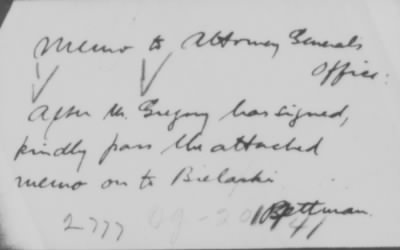 Memo to Attorney Generals
Office.
After Mr. Gregory has signed,
kindly pass the attached
memo on to Bielaski
Bettman.
2777
41